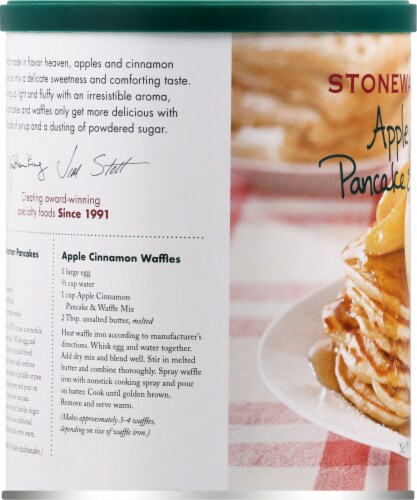 made in flavor heaven, apples and cinnamon
mix a delicate sweetness and comforting taste.
up light and fluffy with an irresistible aroma,
pancakes and waffles only get more delicious with
of syrup and a dusting of powdered sugar.
Jim Stott
Creating award-winning
specialty foods Since 1991
Pancakes
Apple Cinnamon Waffles
1 large egg
cup water
1 cup Apple Cinnamon
Pancake & Waffle Mix
2 Tbsp. unsalted butter, melted
Heat waffle iron according to manufacturer's
directions. Whisk egg and water together.
Add dry mix and blend well. Stir in melted
butter and combine thoroughly. Spray waffle
iron with nonstick cooking spray and pour
on batter. Cook until golden brown.
Remove and serve warm.
(Makes approximately 3-4 waffles,
depending on size of waffle iron.)
STONEWA
Apple
Pancake &